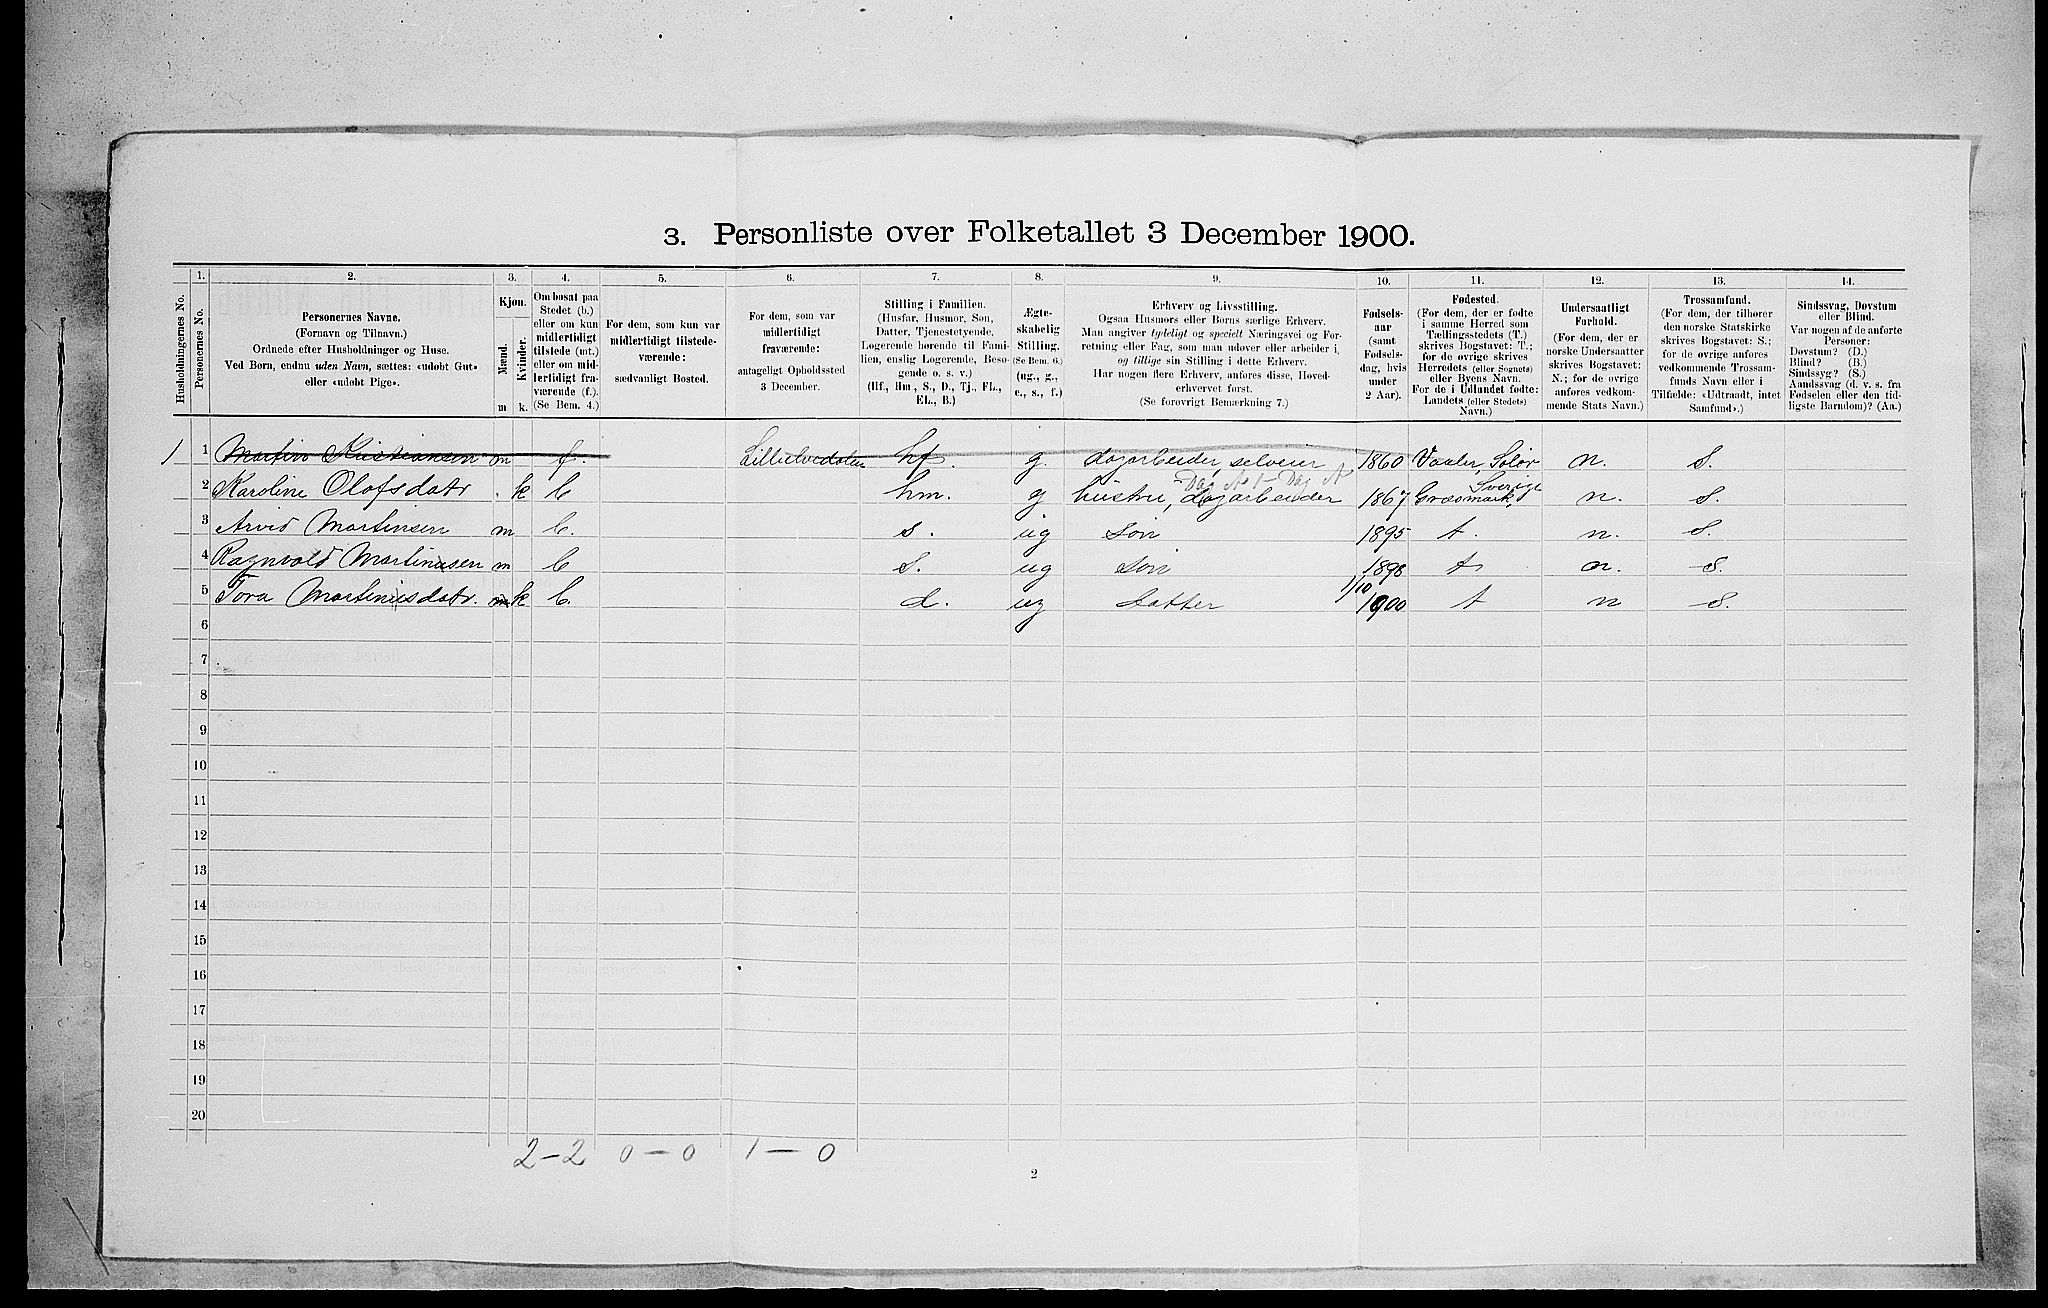 3. Personliste over Folketallet 3 December 1900.
1. 2. 3. 4. 5. 6. 7. 8. 9. 10. 11. 12. 13. 14.
Husholdningernes No.
Personernes No.
Personernes Navne.
(Fornavn og Tilnavn.)
Ordnede efter Husholdninger og Huse.
Ved Børn, endnu uden Navn, sættes: «udøbt Gut»
eller «udøbt Pige».
Kjøn.
Mænd.
Kvinder.
m k.
Om bosat paa
Stedet (b.)
eller om kun
midlertidigt
tilstede (mt.)
eller om mid-
lertidigt fra-
værende (f.).
(Se Bem. 4.)
For dem, som kun var
midlertidigt tilstede-
værende:
sædvanligt Bosted.
For dem, som var
midlertidigt
fraværende:
antageligt Opholdssted
3 December.
Stilling i Familien.
(Husfar, Husmor, Søn,
Datter, Tjenestetyende,
Logerende hørende til Fami-
lien, enslig Logerende, Besø-
gende o. s. v.)
(Hf., Hm., S., D., Tj., FL.,
EL., B.)
Ægte-
skabelig
Stilling.
(Se Bem. 6.)
(ug., g.,
e., s., f.)
Erhverv og Livsstilling.
Ogsaa Husmors eller Børns særlige Erhverv.
Man angiver tydeligt og specielt Næringsvei og For-
retning eller Fag, som man udøver eller arbeider i,
og tillige sin Stilling i dette Erhverv.
Har nogen flere Erhverv, anføres disse, Hoved-
erhvervet først.
(Se forøvrigt Bemærkning 7.)
Fødsels-
aar
(samt
Fødsels-
dag, hvis
under
2 Aar).
Fødested.
(For dem, der er fødte
i samme Herred som
Tællingsstedets (T.)
skrives Bogstavet: T.;
for de øvrige skrives
Herredets (eller Sognets)
eller Byens Navn.
For de i Udlandet fødte:
Landets (eller Stedets)
Navn.)
Undersaatligt
Forhold.
(For dem, der er
norske Undersaatter
skrives Bogstavet:
N.; for de øvrige
anføres vedkom-
mende Stats Navn.)
Trossamfund.
(For dem, der tilhører
den norske Statskirke
skrives Bogstavet: S.;
for de øvrige anføres
vedkommende Trossam-
funds Navn eller i
Tilfælde: «Udtraadt, intet
Samfund».)
Sindssvag, Døvstum
eller Blind.
Var nogen af de anførte
Personer:
Døvstum? (D.)
Blind? (B.)
Sindssyg? (S.)
Aandssvag (d. v. s. fra
Fødselen eller den tid-
ligste Barndom)? (Aa.)
1 1 Martin Kristiansen m f. Lilleelvedalen hf. g. dagarbeider, selveier 1860 Vaaler, Solør n. S.
2 Karoline Olofsdatr. k b hm. g hustru, dagarbeider 1867 Græsmark, Sverige n. S.
3 Arvid Martinsen m b. s. ug søn 1895 t. n. S.
4 Ragnvald Martinusen m b S. ug søn 1898 t n. S.
5 Tora Martinusdatr. m k b. d. ug datter 1/10 1900 t n S.
6
7
8
9
10
11
12
13
14
15
16
17
18
19
20
2-2 0-0 1-0
2